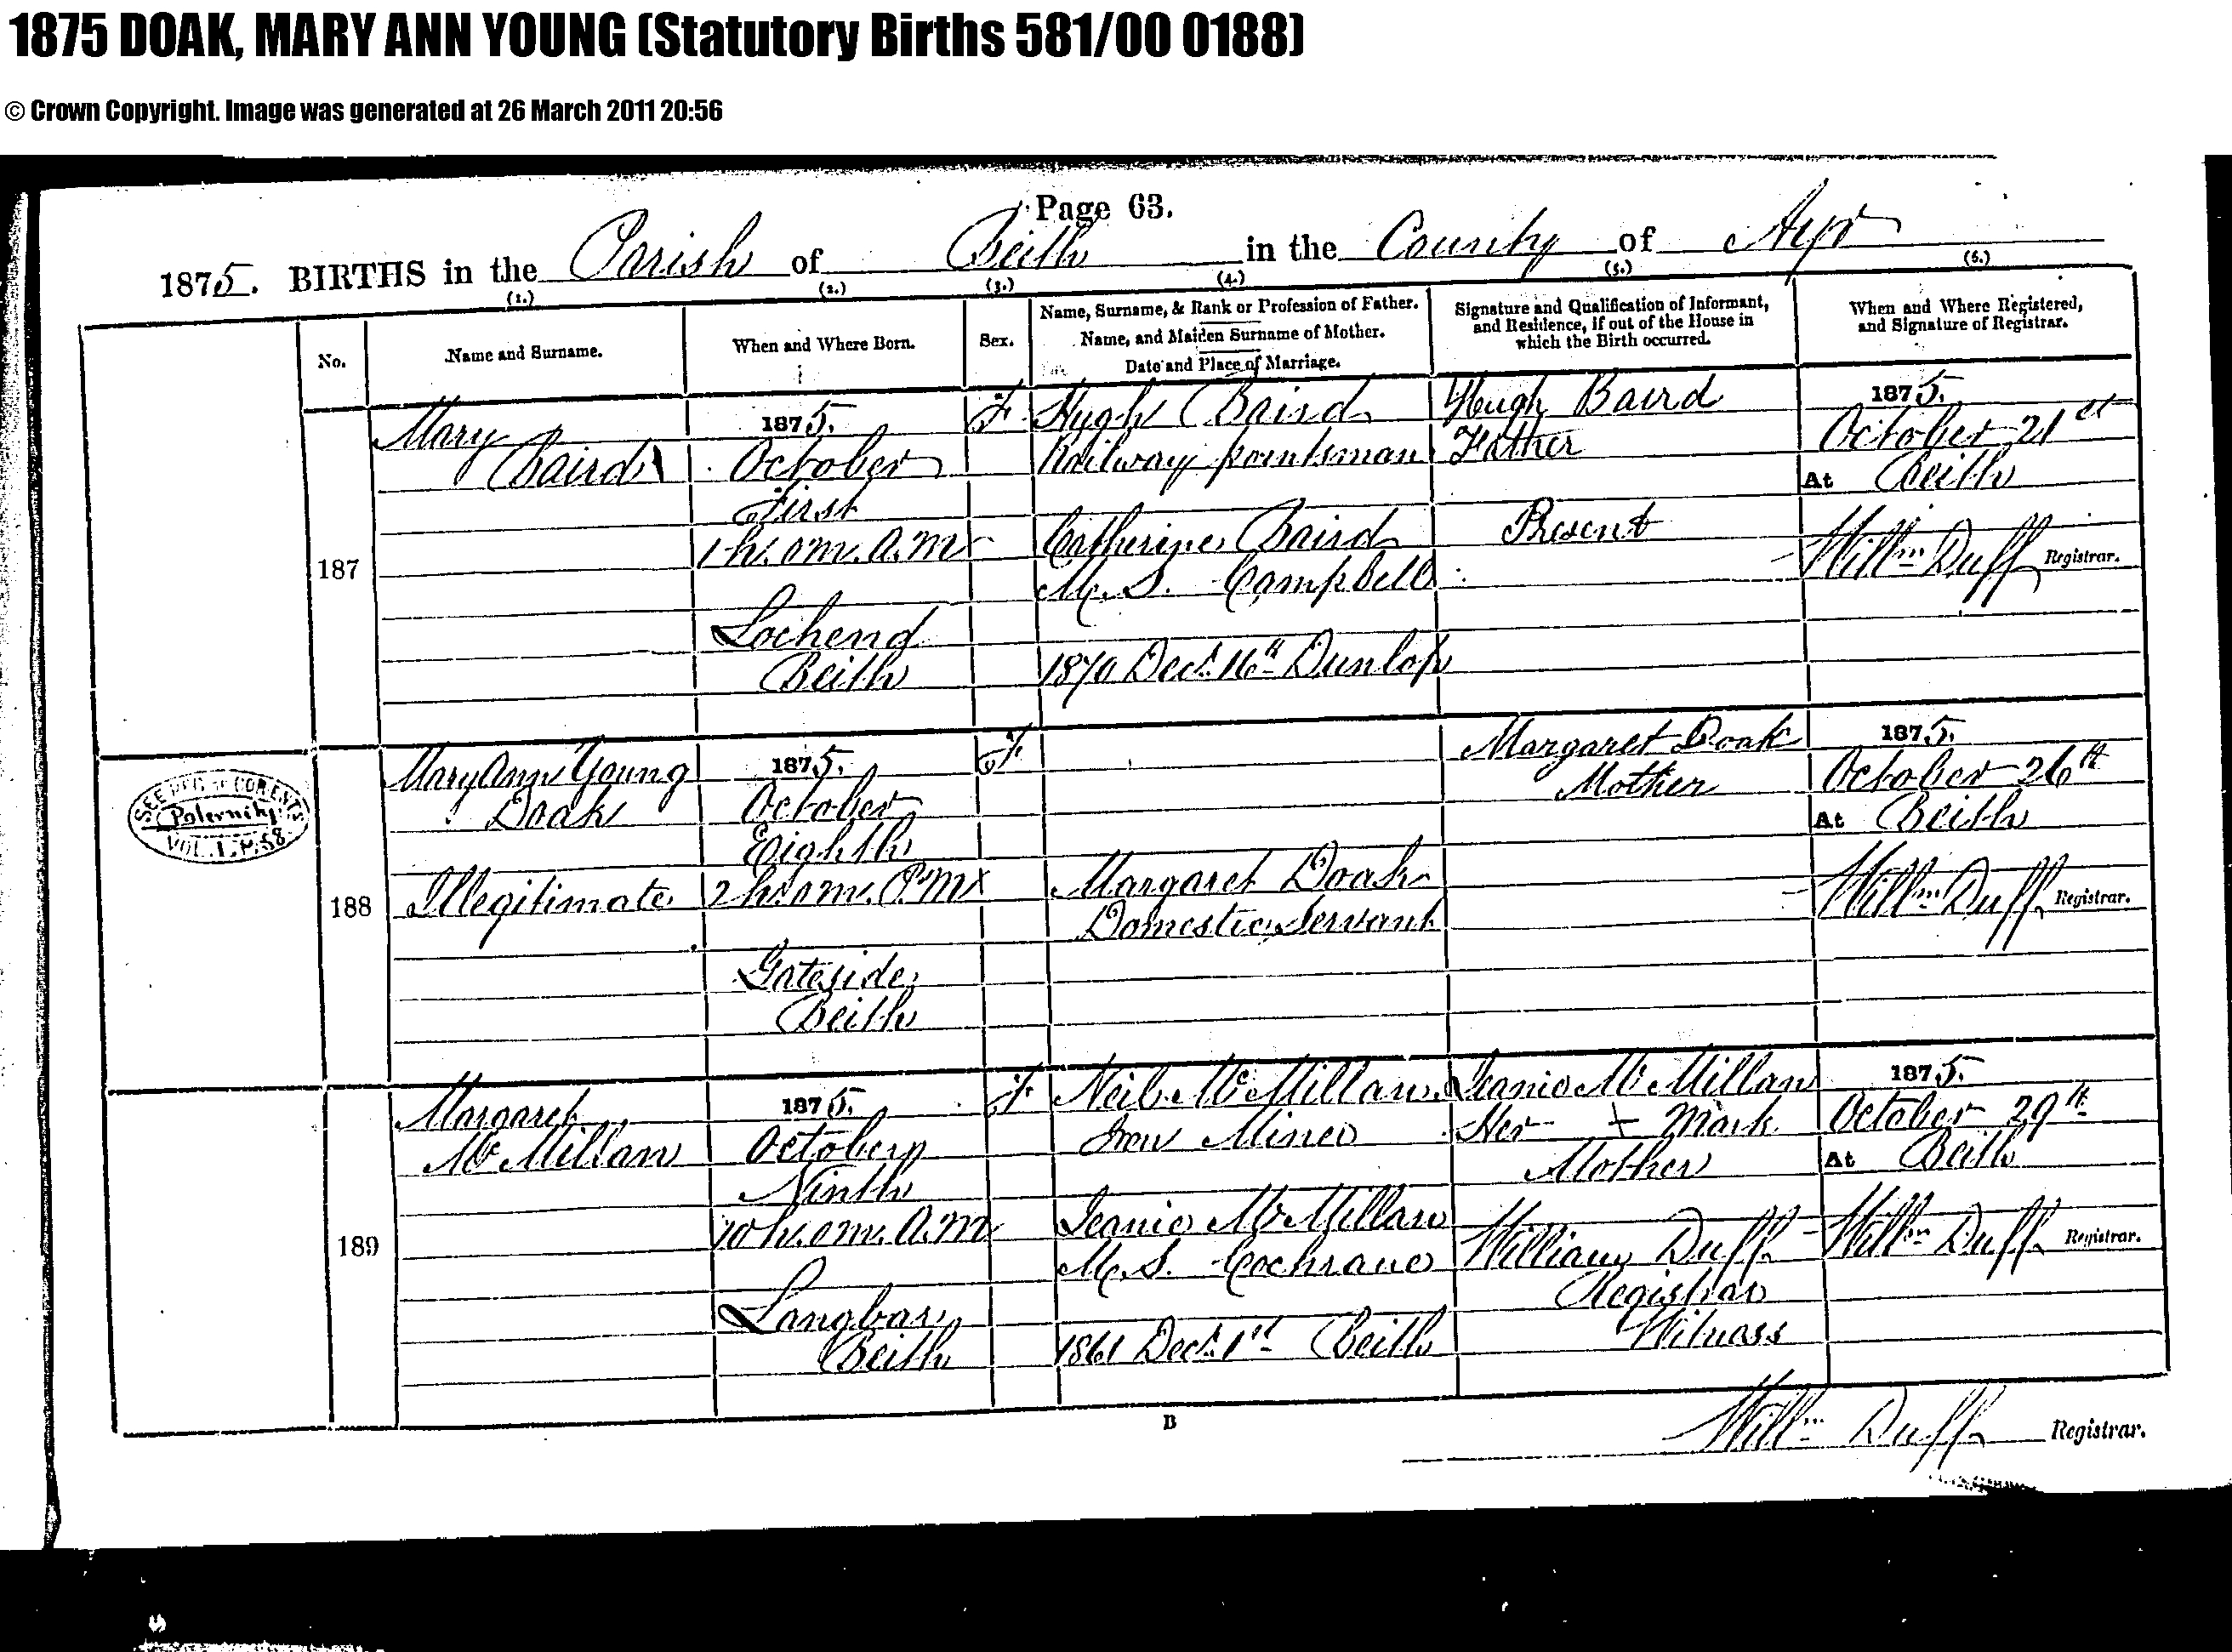 1875 DOAK, MARY ANN YOUNG (Statutory Births 581/00 0188)
© Crown Copyright. Image was generated at 26 March 2011 20:56
Page 63.
1875. BIRTHS in the Parish of Beith in the County of Ayr
(1.) (2.) (3.) (4.) (5.) (6.)
No.
Name and Surname.
When and Where Born.
Sex.
Name, Surname, & Rank or Profession of Father.
Name, and Maiden Surname of Mother.
Date and Place of Marriage.
Signature and Qualification of Informant,
and Residence, if out of the House in
which the Birth occurred.
When and Where Registered,
and Signature of Registrar.
187
Mary
Baird
1875.
October
First
1 h. 0 m. A.M.
Lochend
Beith
F
Hugh Baird
Railway pointsman
Catherine Baird
M.S. Campbell
1870 Decr. 16th Dunlop
Hugh Baird
Father
Present
1875.
October 21st
At Beith
Willm Duff Registrar.
SEE REG OF COR ENTS
Paternity
VOL. I. P. 58
188
Mary Ann Young
Doak
Illegitimate
1875.
October
Eighth
2 h. 0 m. P.M.
Gateside
Beith
F
Margaret Doak
Domestic Servant
Margaret Doak
Mother
1875.
October 26th
At Beith
Willm Duff Registrar.
189
Margaret
McMillan
1875.
October
Ninth
10 h. 0 m. A.M.
Langbar
Beith
F
Neil McMillan
Iron Miner
Jeanie McMillan
M.S. Cochrane
1861 Decr. 1st Beith
Jeanie McMillan
Her + Mark
Mother
William Duff
Registrar
Witness
1875.
October 29th
At Beith
Willm Duff Registrar.
B
Willm Duff Registrar.